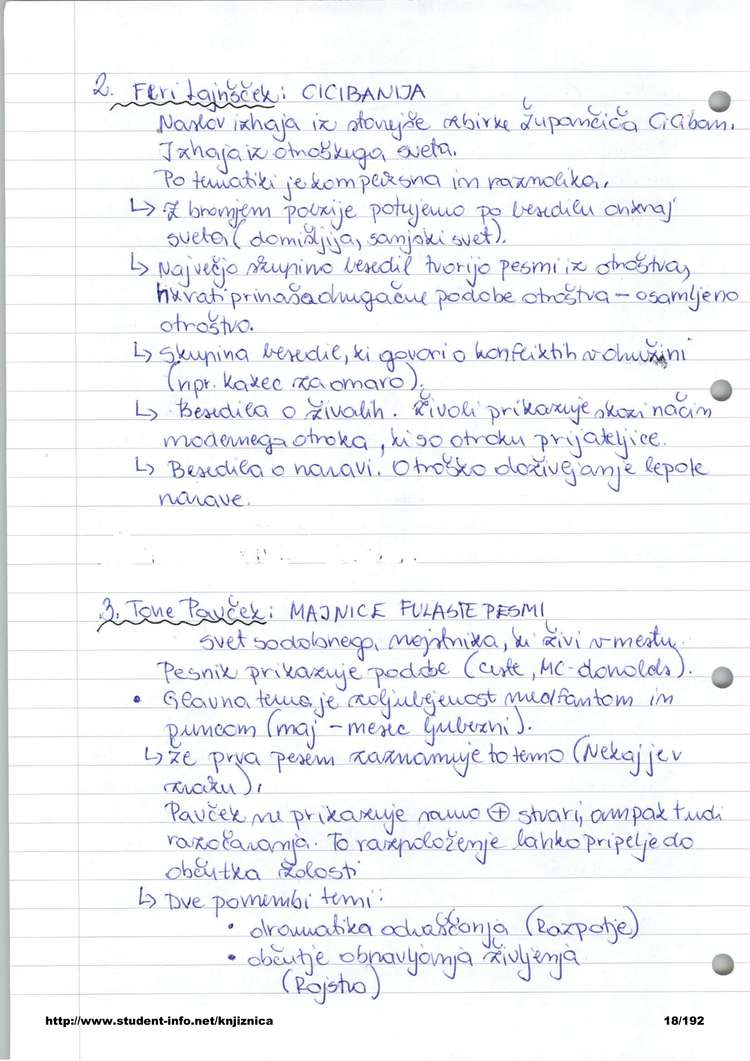 2. Feri Lajnšček: CICIBANIJA
Naslov izhaja iz starejše zbirke Župančiča Ciciban.
Izhaja iz otroškega sveta.
Po tematiki je kompleksna in raznolika.
↳ Z branjem poezije potujemo po besedilu onkraj
sveta (domišljija, sanjski svet).
↳ Največjo skupino besedil tvorijo pesmi iz otroštva,
hkrati prinaša drugačne podobe otroštva – osamljeno
otroštvo.
↳ Skupina besedil, ki govori o konfliktih v družini
(npr. Kakec za omaro).
↳ Besedila o živalih. Živali prikazuje skozi način
modernega otroka, ki so otroku prijateljice.
↳ Besedila o naravi. Otroško doživljanje lepote
narave.
3. Tone Pavček: MAJNICE FULASTE PESMI
svet sodobnega najstnika, ki živi v mestu.
Pesnik prikazuje podobe (ceste, MC-donolds).
• Glavna tema je zaljubljenost med fantom in
puncom (maj – mesec ljubezni).
↳ že prva pesem zaznamuje to temo (Nekaj je v
zraku),
Pavček ne prikazuje samo ⊕ stvari, ampak tudi
razočaranja. To razpoloženje lahko pripelje do
občutka žalosti
↳ Dve pomembi temi:
• dramatika odraščanja (Razpotje)
• občutje obnavljanja življenja
(Rojstvo)
http://www.student-info.net/knjiznica 18/192